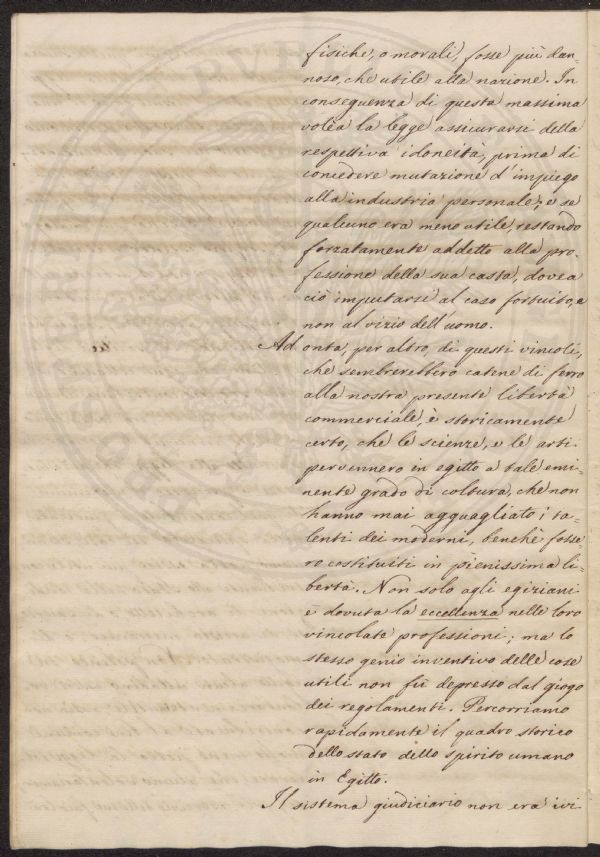 fisiche, o morali, fosse più dan-
noso, che utile alla nazione. In
conseguenza di questa massima
volea la legge assicurarsi della
respettiva idoneità, prima di
concedere mutazione d'impiego
alla industria personale; e se
qualcuno era meno utile, restando
forzatamente addetto alla pro-
fessione della sua casta, dovea
ciò imputarsi al caso fortuito, e
non al vizio dell'uomo.
Ad onta, per altro, di questi vincoli,
che sembrerebbero catene di ferro
alla nostra presente libertà
commerciale, è storicamente
certo, che le scienze, e le arti
pervennero in egitto a tale emi-
nente grado di coltura, che non
hanno mai agguagliato i ta-
lenti dei moderni, benchè fosse-
ro costituiti in pienissima li-
bertà. Non solo agli egiziani
è dovuta la eccellenza nelle loro
vincolate professioni; ma lo
stesso genio inventivo delle cose
utili non fù depresso dal giogo
dei regolamenti. Percorriamo
rapidamente il quadro storico
dello stato dello spirito umano
in Egitto.
Il sistema giudiciario non era ivi